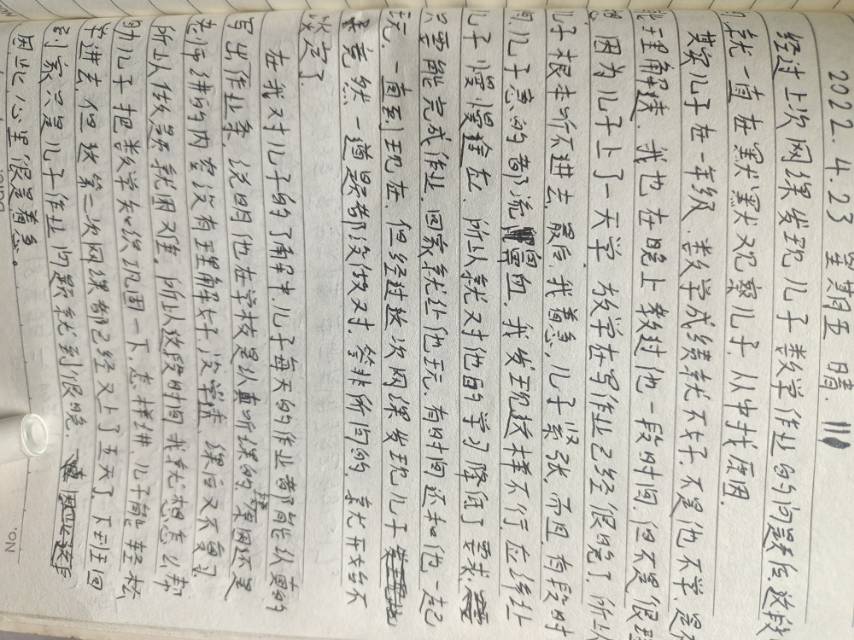 2022.4.23 星期五 晴.
经过上次网课发现儿子数学作业的问题后,这段
就一直在默默观察儿子.从中找原因.
其实儿子在一年级.数学成绩就不好.不是他不学.是
理解慢.我也在晚上教过他一段时间.但不是很理
因为儿子上了一天学 放学在写作业已经很晚了.所以
儿子根本听不进去.最后.我着急,儿子紧张.而且.有段时
间儿子急的都流鼻血.我发现这样不行.应该让
儿子慢慢适应.所以就对他的学习降低了要求.
只要能完成作业.回家就让他玩.有时间还和他一起
玩.一直到现在.但经过这次网课发现儿子
竟然一道题都没做对.答非所问的.就开始不
淡定了.
在我对儿子的了解中.儿子每天的作业都能认真的
写出作业来.说明他在学校是认真听课的.原因还是
老师讲的内容没有理解好.没学精.课后又不复习.
所以做题就困难.所以这段时间我就想怎么帮
助儿子把数学知识巩固一下.怎样讲.儿子能轻松
学进去.但这第二次网课都已经又上了五天了.下班回
到家只是儿子作业问题就到很晚.
因此心里很是着急。
No.